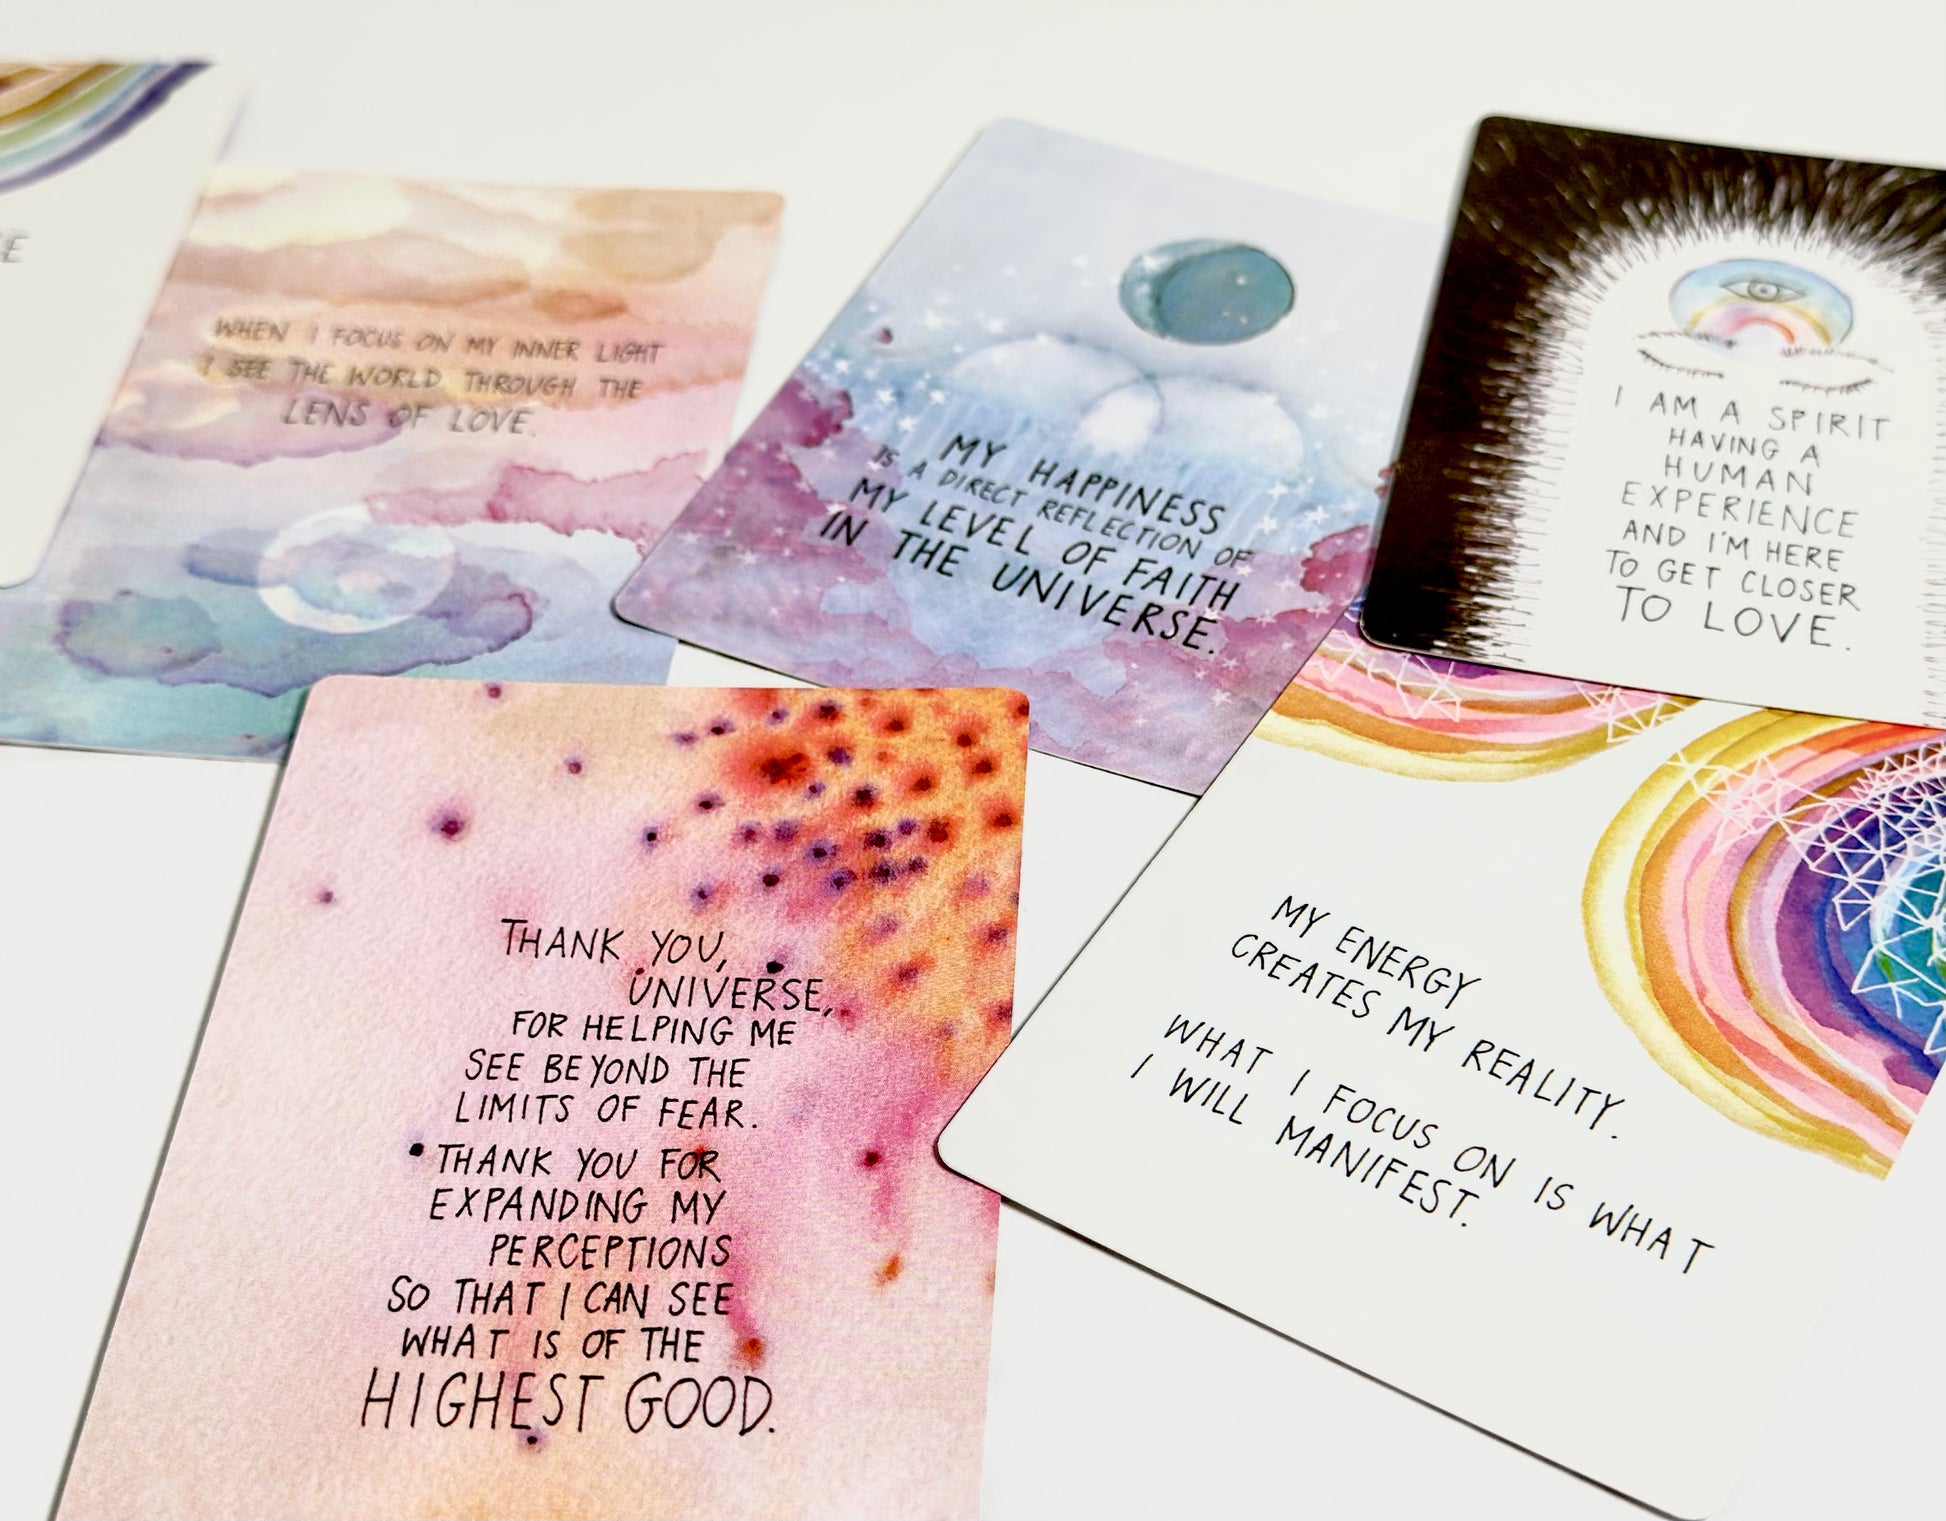 WHEN I FOCUS ON MY INNER LIGHT
I SEE THE WORLD THROUGH THE
LENS OF LOVE.
MY HAPPINESS
IS A DIRECT REFLECTION OF
MY LEVEL OF FAITH
IN THE UNIVERSE.
I AM A SPIRIT
HAVING A
HUMAN
EXPERIENCE
AND I'M HERE
TO GET CLOSER
TO LOVE.
THANK YOU,
UNIVERSE,
FOR HELPING ME
SEE BEYOND THE
LIMITS OF FEAR.
THANK YOU FOR
EXPANDING MY
PERCEPTIONS
SO THAT I CAN SEE
WHAT IS OF THE
HIGHEST GOOD.
MY ENERGY
CREATES MY REALITY.
WHAT I FOCUS ON IS WHAT
I WILL MANIFEST.